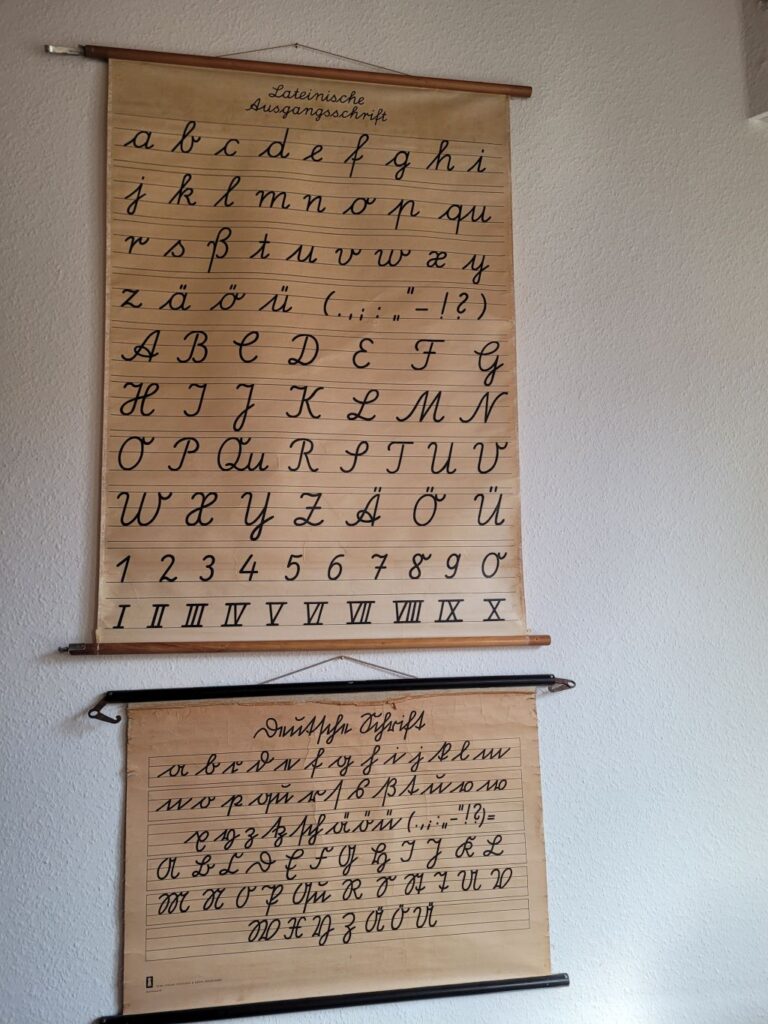 Lateinische
Ausgangsschrift
a b c d e f g h i
j k l m n o p qu
r s ß t u v w x y
z ä ö ü ( . , ; : „ " - ! ? )
A B C D E F G
H I J K L M N
O P Qu R S T U V
W X Y Z Ä Ö Ü
1 2 3 4 5 6 7 8 9 0
I II III IV V VI VII VIII IX X
Deutsche Schrift
a b c d e f g h i j k l m
n o p qu r ſ s ß t u v w
x y z tz sch ä ö ü ( . , ; : „ - " ! ? ) =
A B C D E F G H I J K L
M N O P Qu R S St T U V
W X Y Z Ä Ö Ü